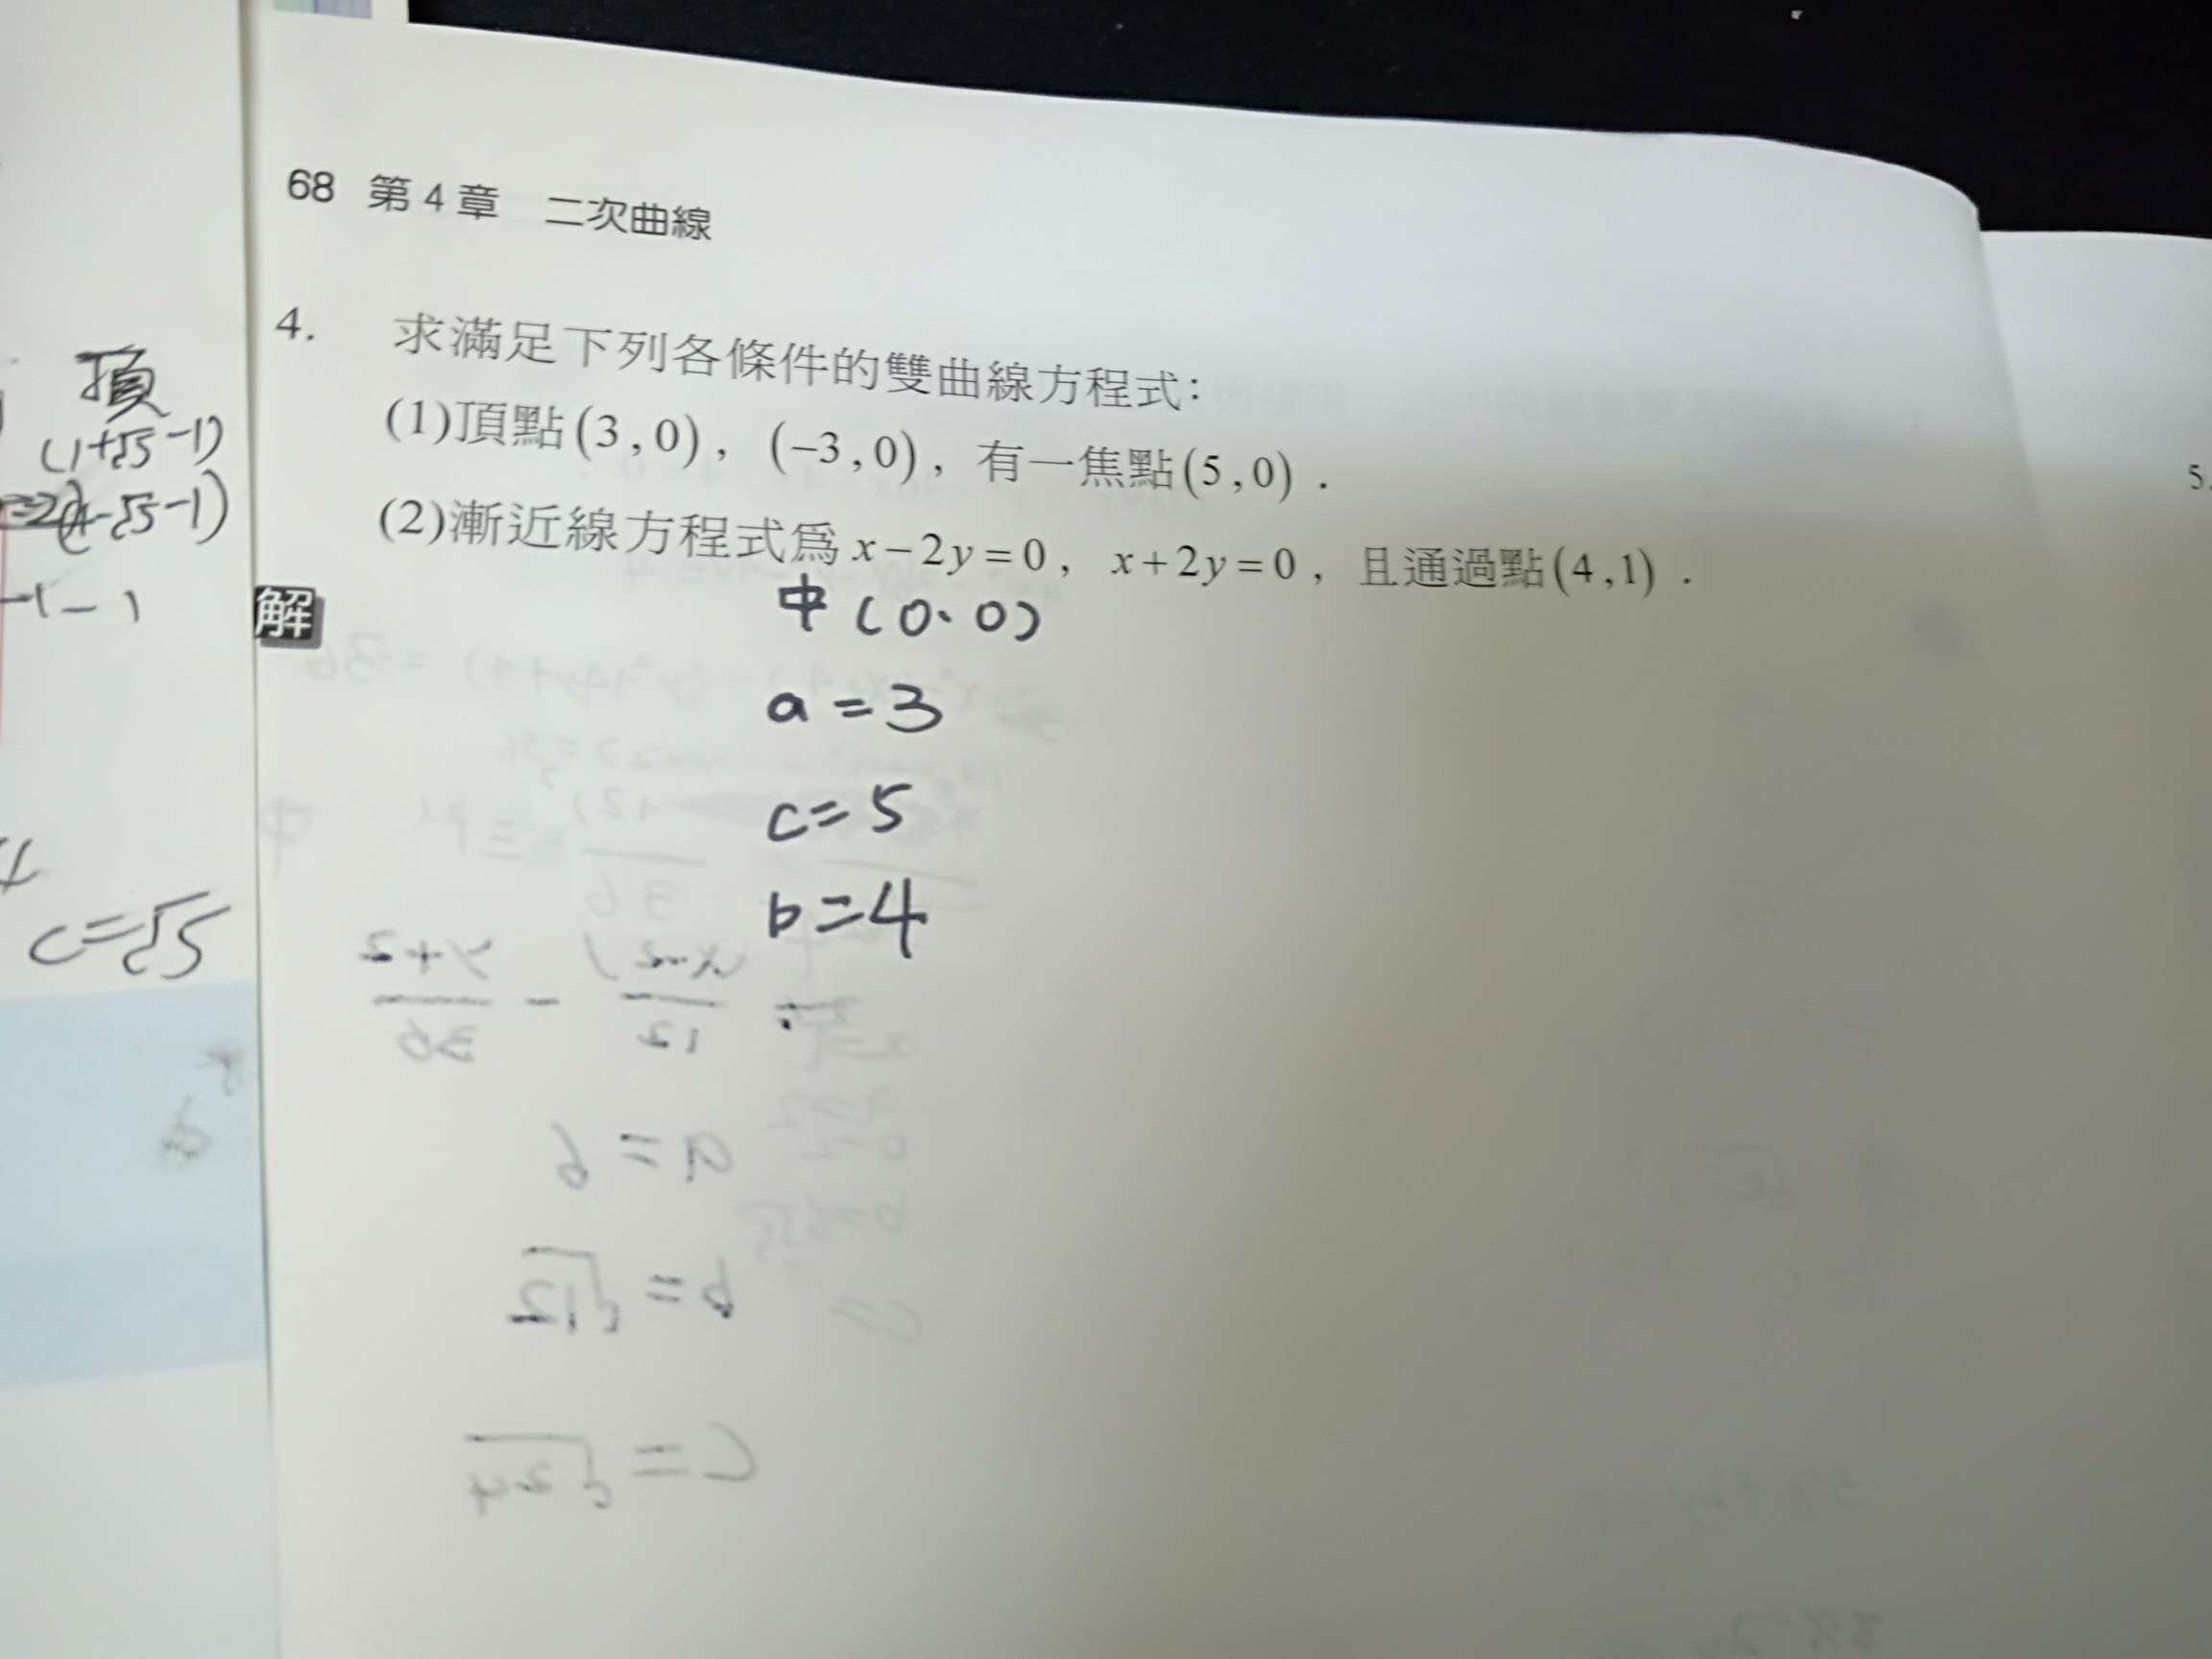 68 第4章 二次曲線
4. 求滿足下列各條件的雙曲線方程式：
(1)頂點(3,0)，(−3,0)，有一焦點(5,0)．
(2)漸近線方程式爲x−2y=0，x+2y=0，且通過點(4,1)．
解
中(0、0)
a=3
c=5
b=4
頂
(1+√5 -1)
-√5-1)
-1-1
c=√5
5.